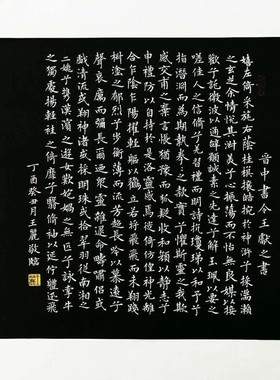 晉中書令王獻之書
嬉左倚采旄右陰桂旗攘皓腕於神滸兮採湍瀨
之玄芝余情悅其淑美兮心振蕩而不怡無良媒以接
歡兮託微波以通辭願誠素之先達兮解玉珮以要之
嗟佳人之信脩兮羌習禮而明詩抗瓊珶以和予兮
指潛淵而為期執拳拳之款實兮懼斯靈之我欺
感交甫之棄言悵猶豫而狐疑收和顏以靜志兮
申禮防以自持於是洛靈感焉徙倚仿偟神光離
合乍陰乍陽擢輕軀以鶴立若將飛而未翔踐
椒塗之郁烈兮步蘅薄而流芳超長吟以慕遠兮
聲哀厲而彌長爾迺眾靈雜遝命疇嘯侶或
戲清流或翔神渚或採明珠或拾翠羽從南湘之
二妃兮攜漢濱之遊女歎匏媧之無匹兮詠牽牛
之獨處揚輕袿之倚靡兮翳脩袖以延佇體迅飛
丁酉癸丑月王麗敬臨